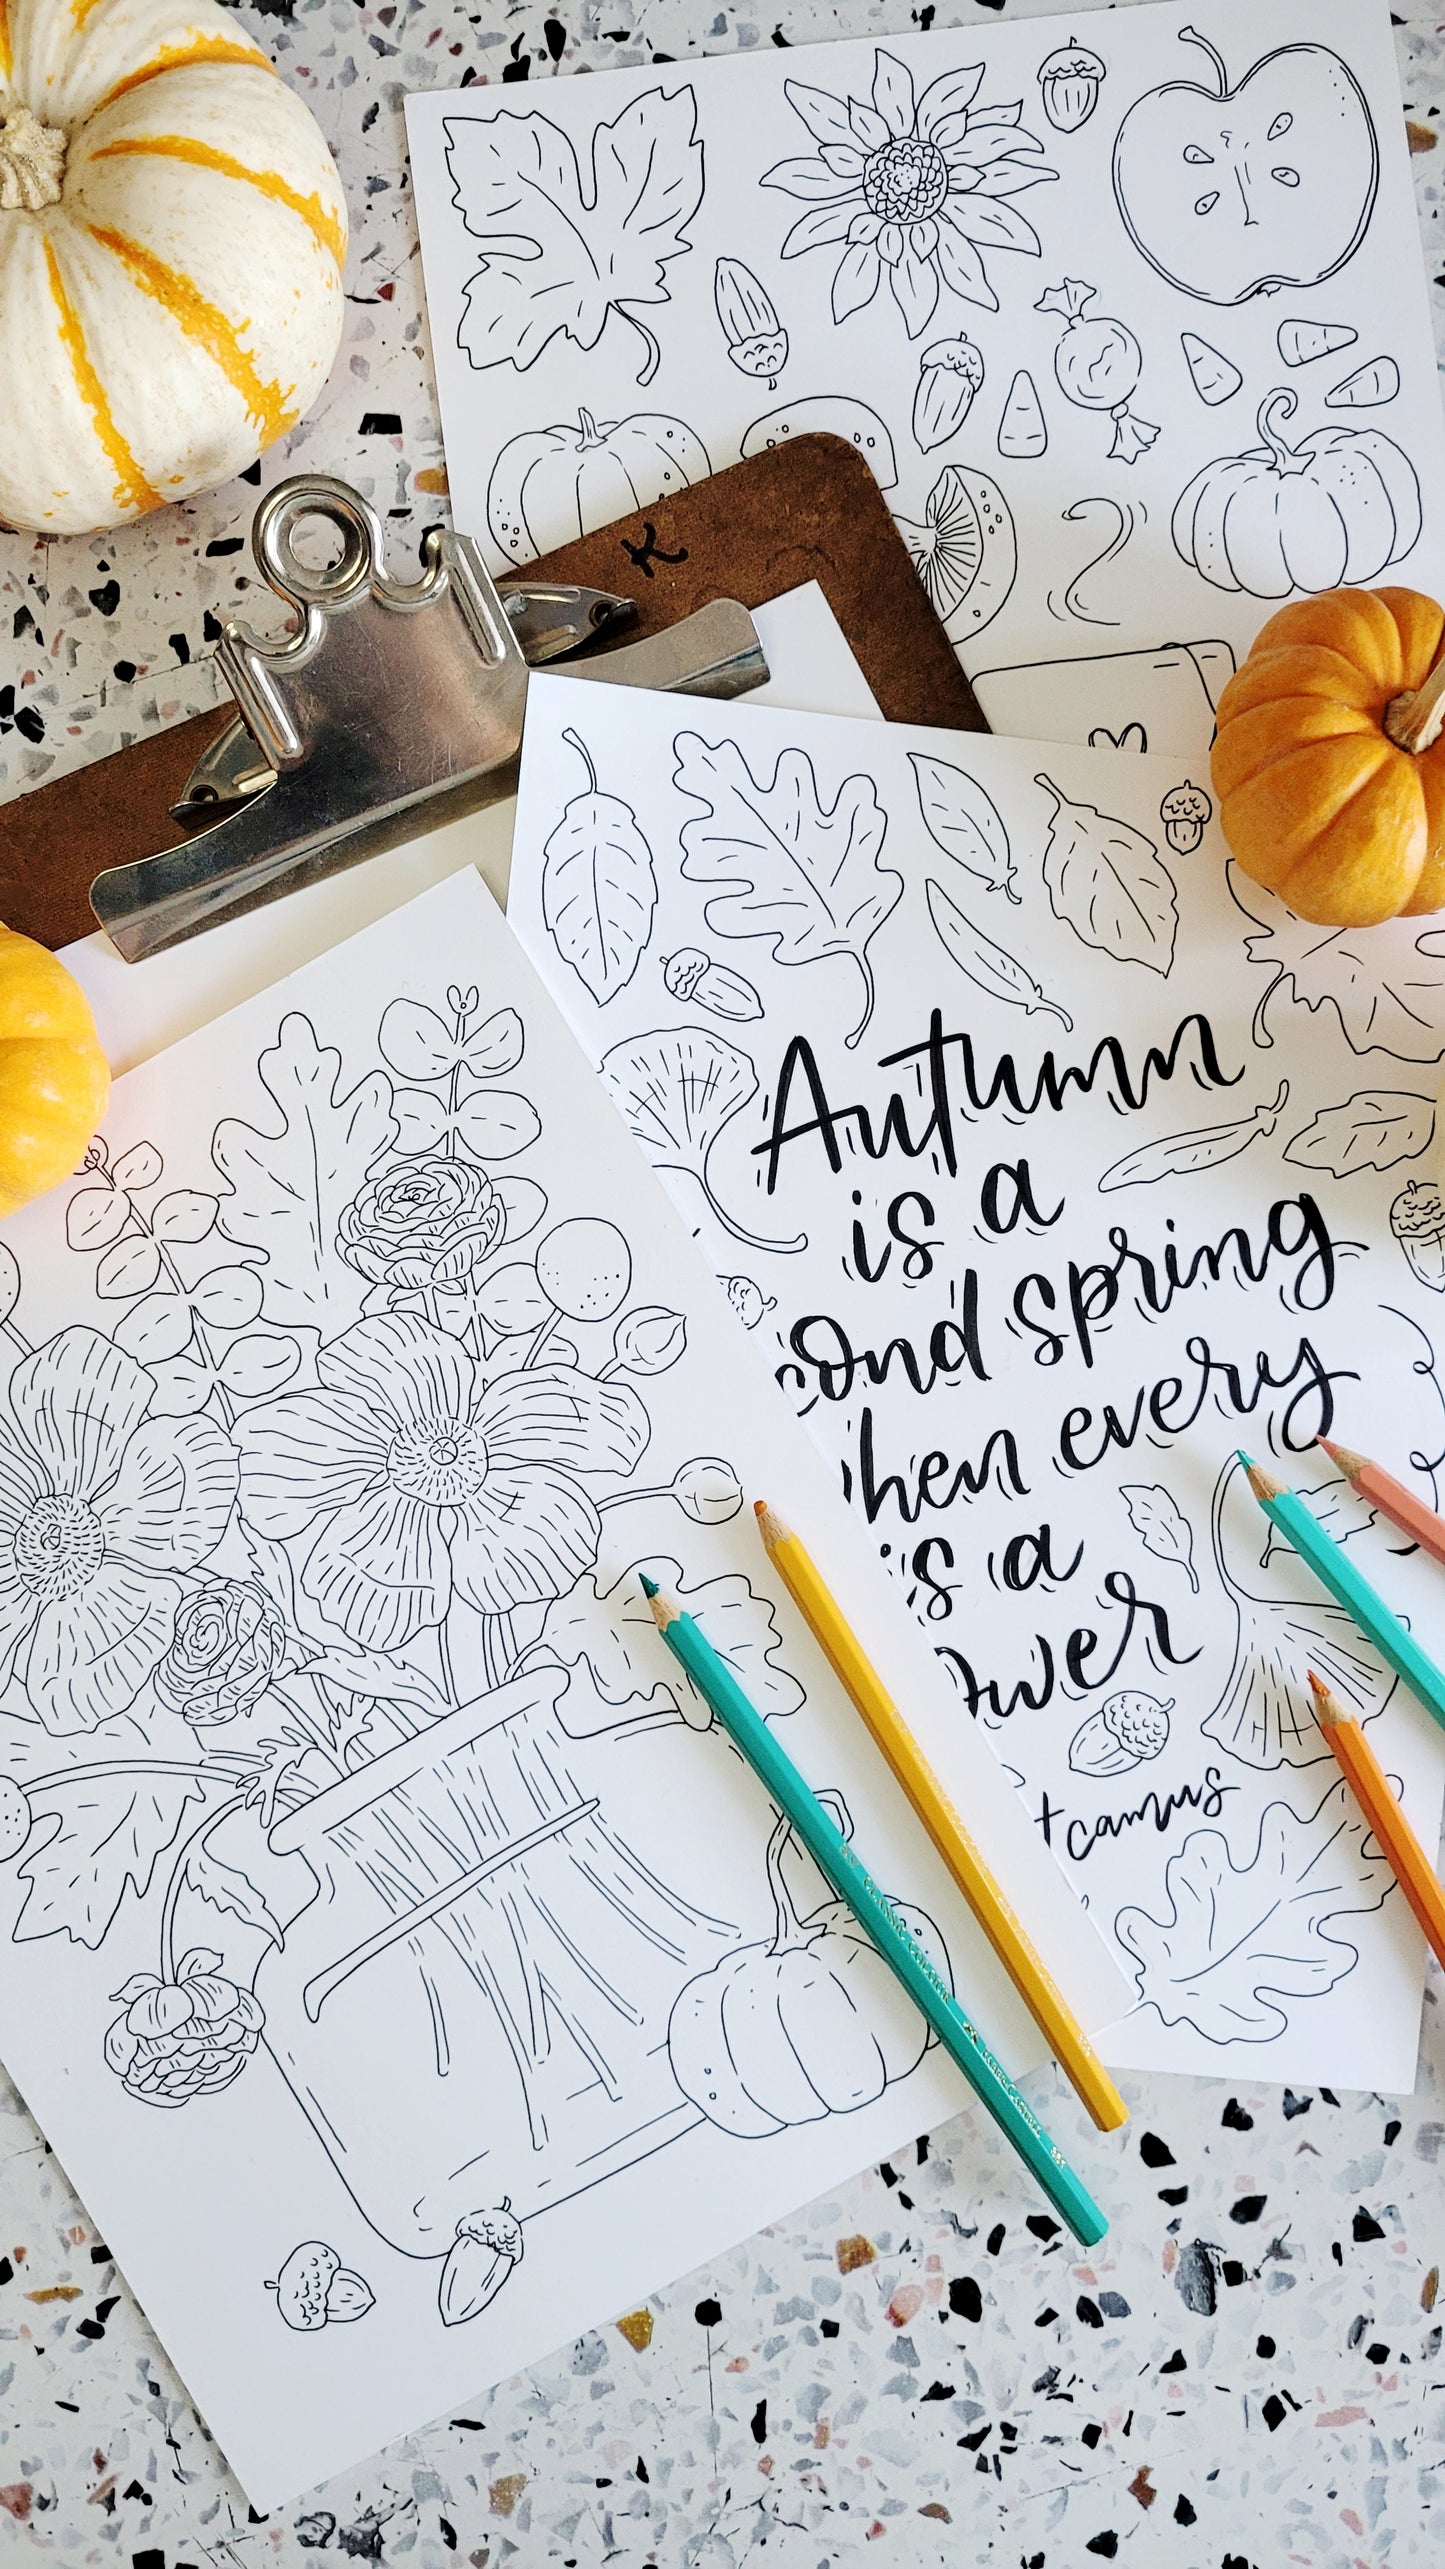 K
Autumn
is a
cond spring
hen every
is a
ower
t camus